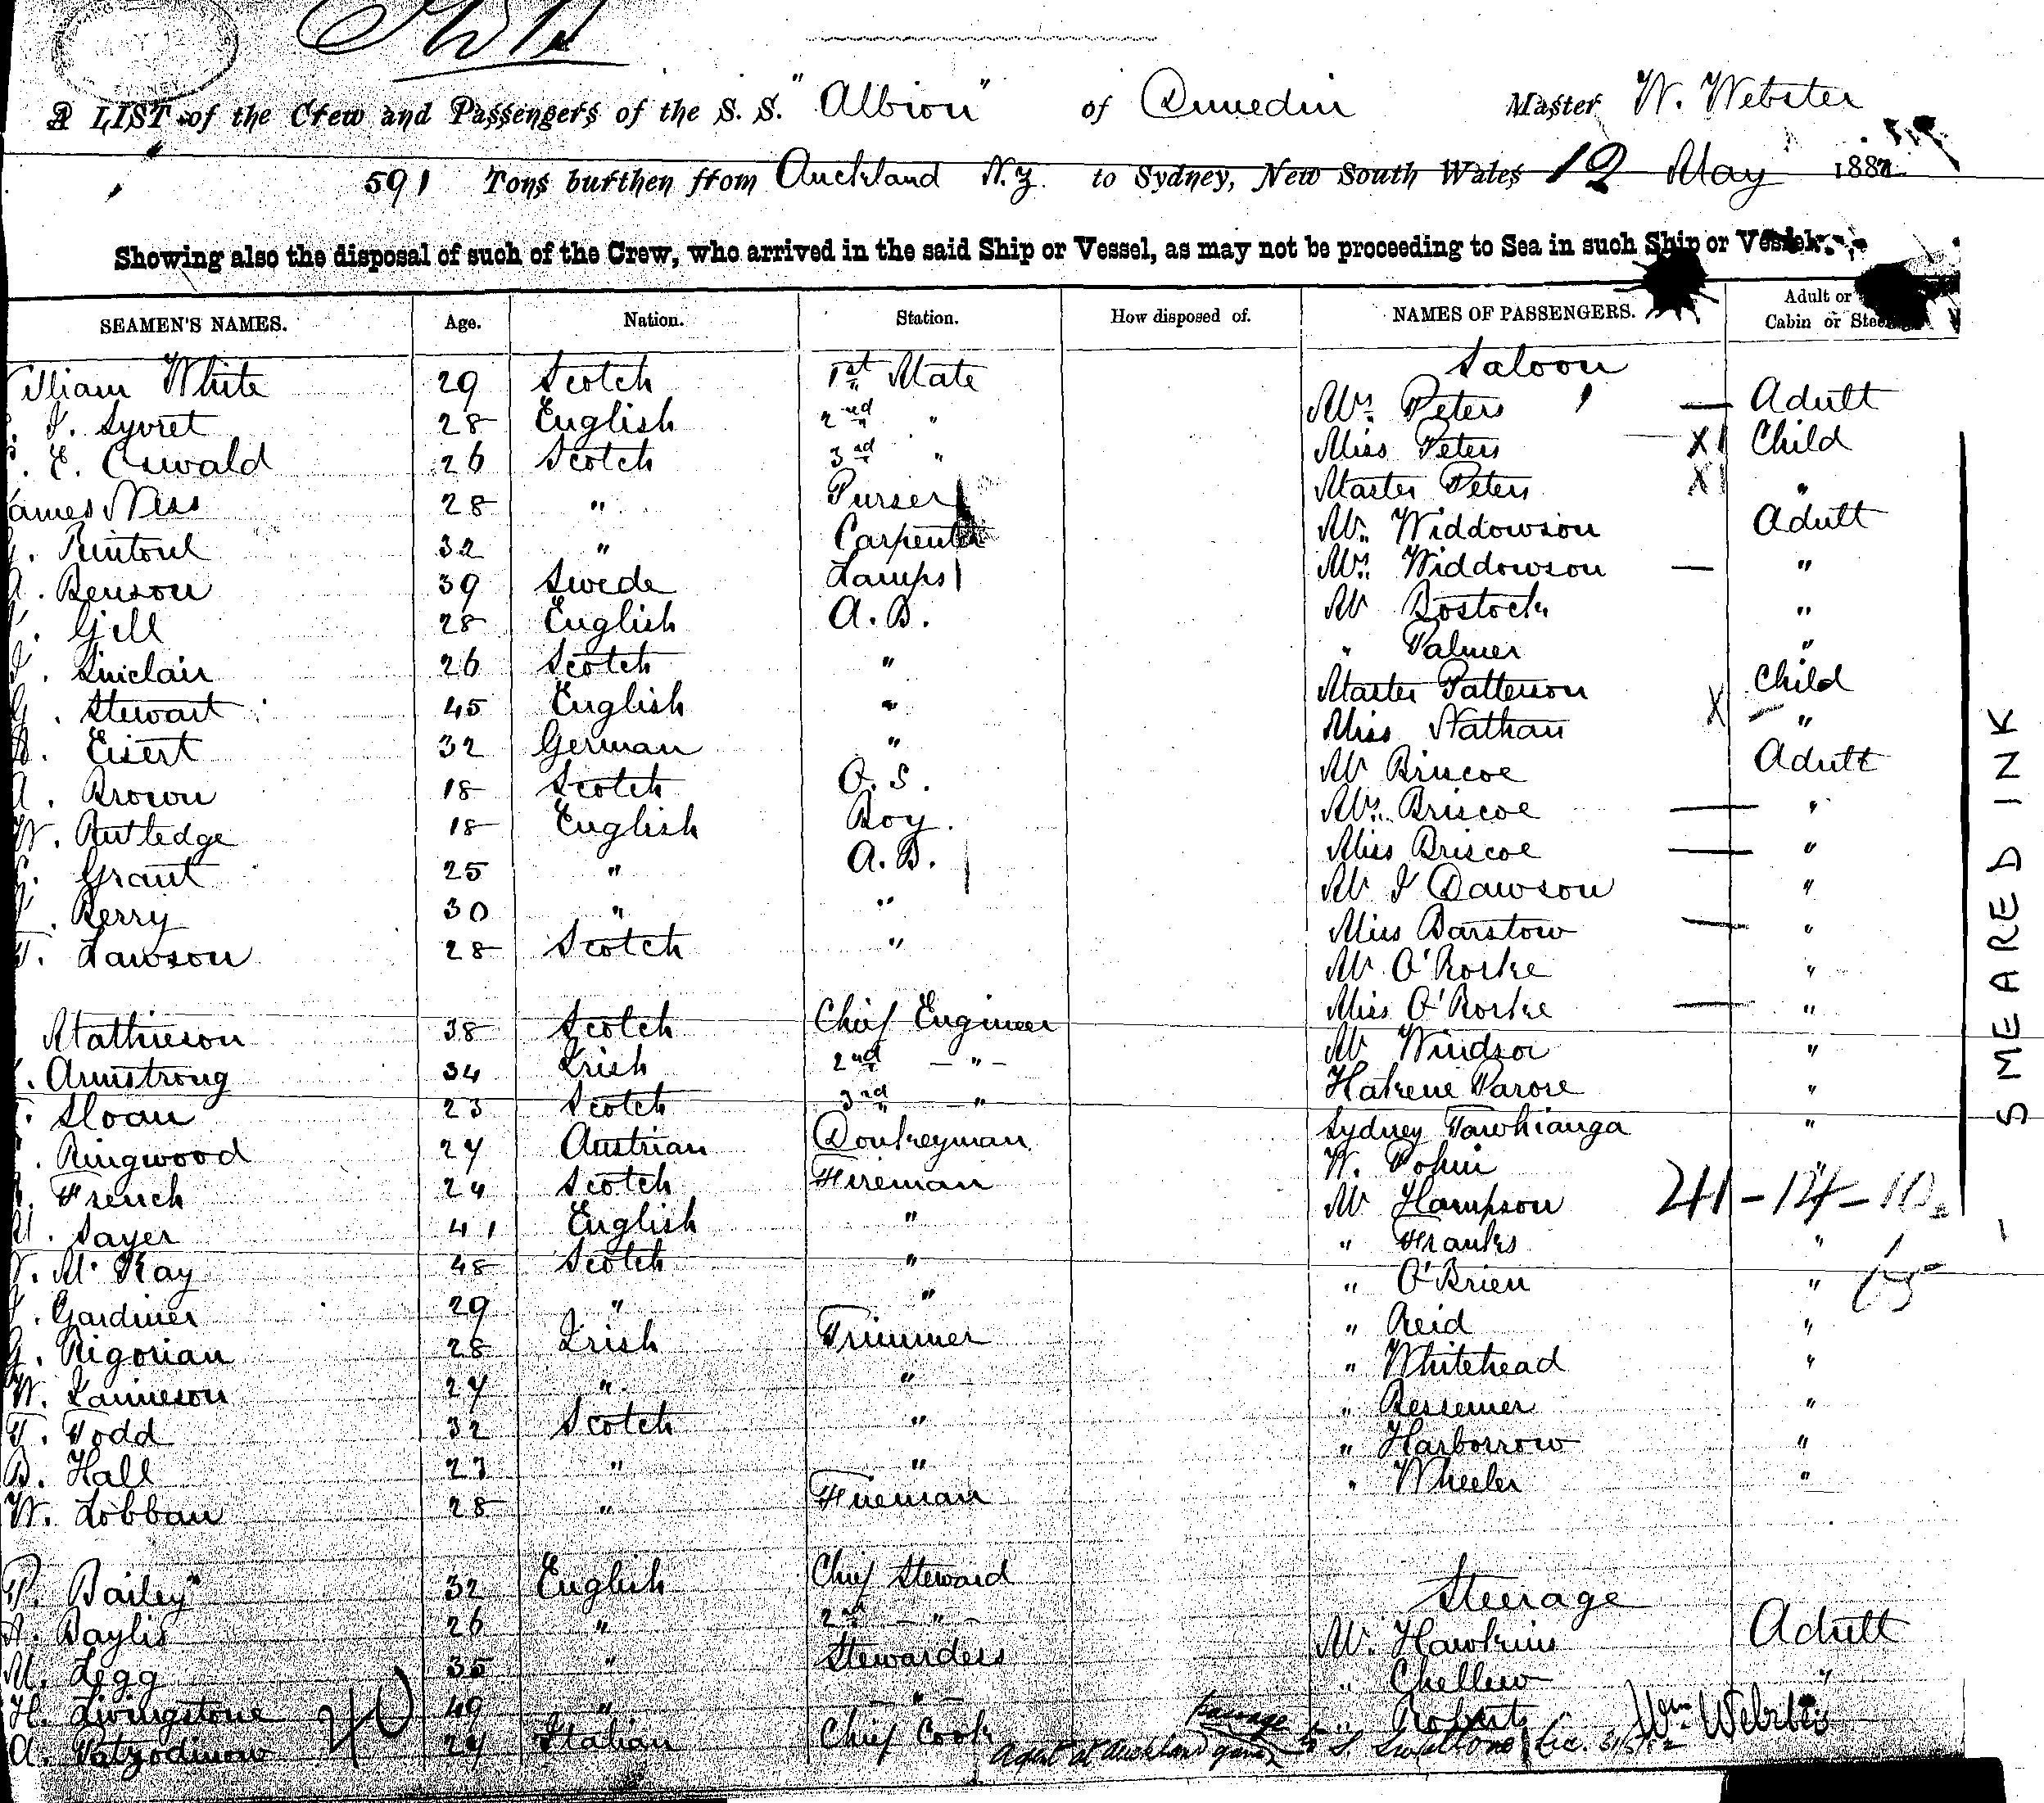 A LIST of the Crew and Passengers of the S. S. "Albion" of Dunedin Master W. Webster
591 Tons burthen from Auckland N.Z. to Sydney, New South Wales 12 May 1882
Showing also the disposal of such of the Crew, who arrived in the said Ship or Vessel, as may not be proceeding to Sea in such Ship or Vessel.
SEAMEN'S NAMES. Age. Nation. Station. How disposed of. NAMES OF PASSENGERS. Adult or
Cabin or
Saloon
William White 29 Scotch 1st Mate Mrs. Peters — Adult
Syvret 28 English 2nd " Miss Peters X Child
E. Oswald 26 Scotch 3rd " Master Peters X "
James Ness 28 " Purser Mr. Widdowson Adult
Rintoul 32 " Carpenter Mrs. Widdowson — "
Benson 39 Swede Lamps Mr Bostock "
Gill 28 English A.B. " Palmer "
Sinclair 26 Scotch " Master Patterson Child
G. Stewart 45 English " Miss Nathan X "
Eisert 32 German " Mr Briscoe Adult
A. Brown 18 Scotch O.S. Mrs. Briscoe — "
W. Rutledge 18 English Boy. Miss Briscoe — "
Grant 25 " A.B. Mr J Dawson "
Berry 30 " " Miss Barstow — "
T. Lawson 28 Scotch " Mr O'Rorke "
Miss O'Rorke — "
Mathieson 38 Scotch Chief Engineer Mr Windsor "
Armstrong 34 Irish 2nd — " — Hakene Parore "
Sloan 23 Scotch 3rd — " Sydney Tawhianga "
Ringwood 24 Austrian Donkeyman W. Pohin "
French 24 Scotch Fireman Mr Hampson " 41-14-10
Sayer 41 English " " Franks "
McKay 48 Scotch " " O'Brien "
J. Gardiner 29 " " " Reid "
G. Rigorian 28 Irish Trimmer " Whitehead "
W. Jamieson 24 " " " Bessemer "
T. Todd 32 Scotch " " Harborrow "
B. Hall 23 " " " Wheeler "
W. Lobban 28 " Fireman
P. Bailey 32 English Chief Steward Steerage
A. Baylis 26 " 2nd — " — Mr. Hawkins Adult
M. Legg 35 " Stewardess " Chellew "
H. Livingstone 49 " — " — " Roberts Wm. Webster
A. 24 Italian Chief Cook
40
passage
Agent at Auckland
SMEARED INK